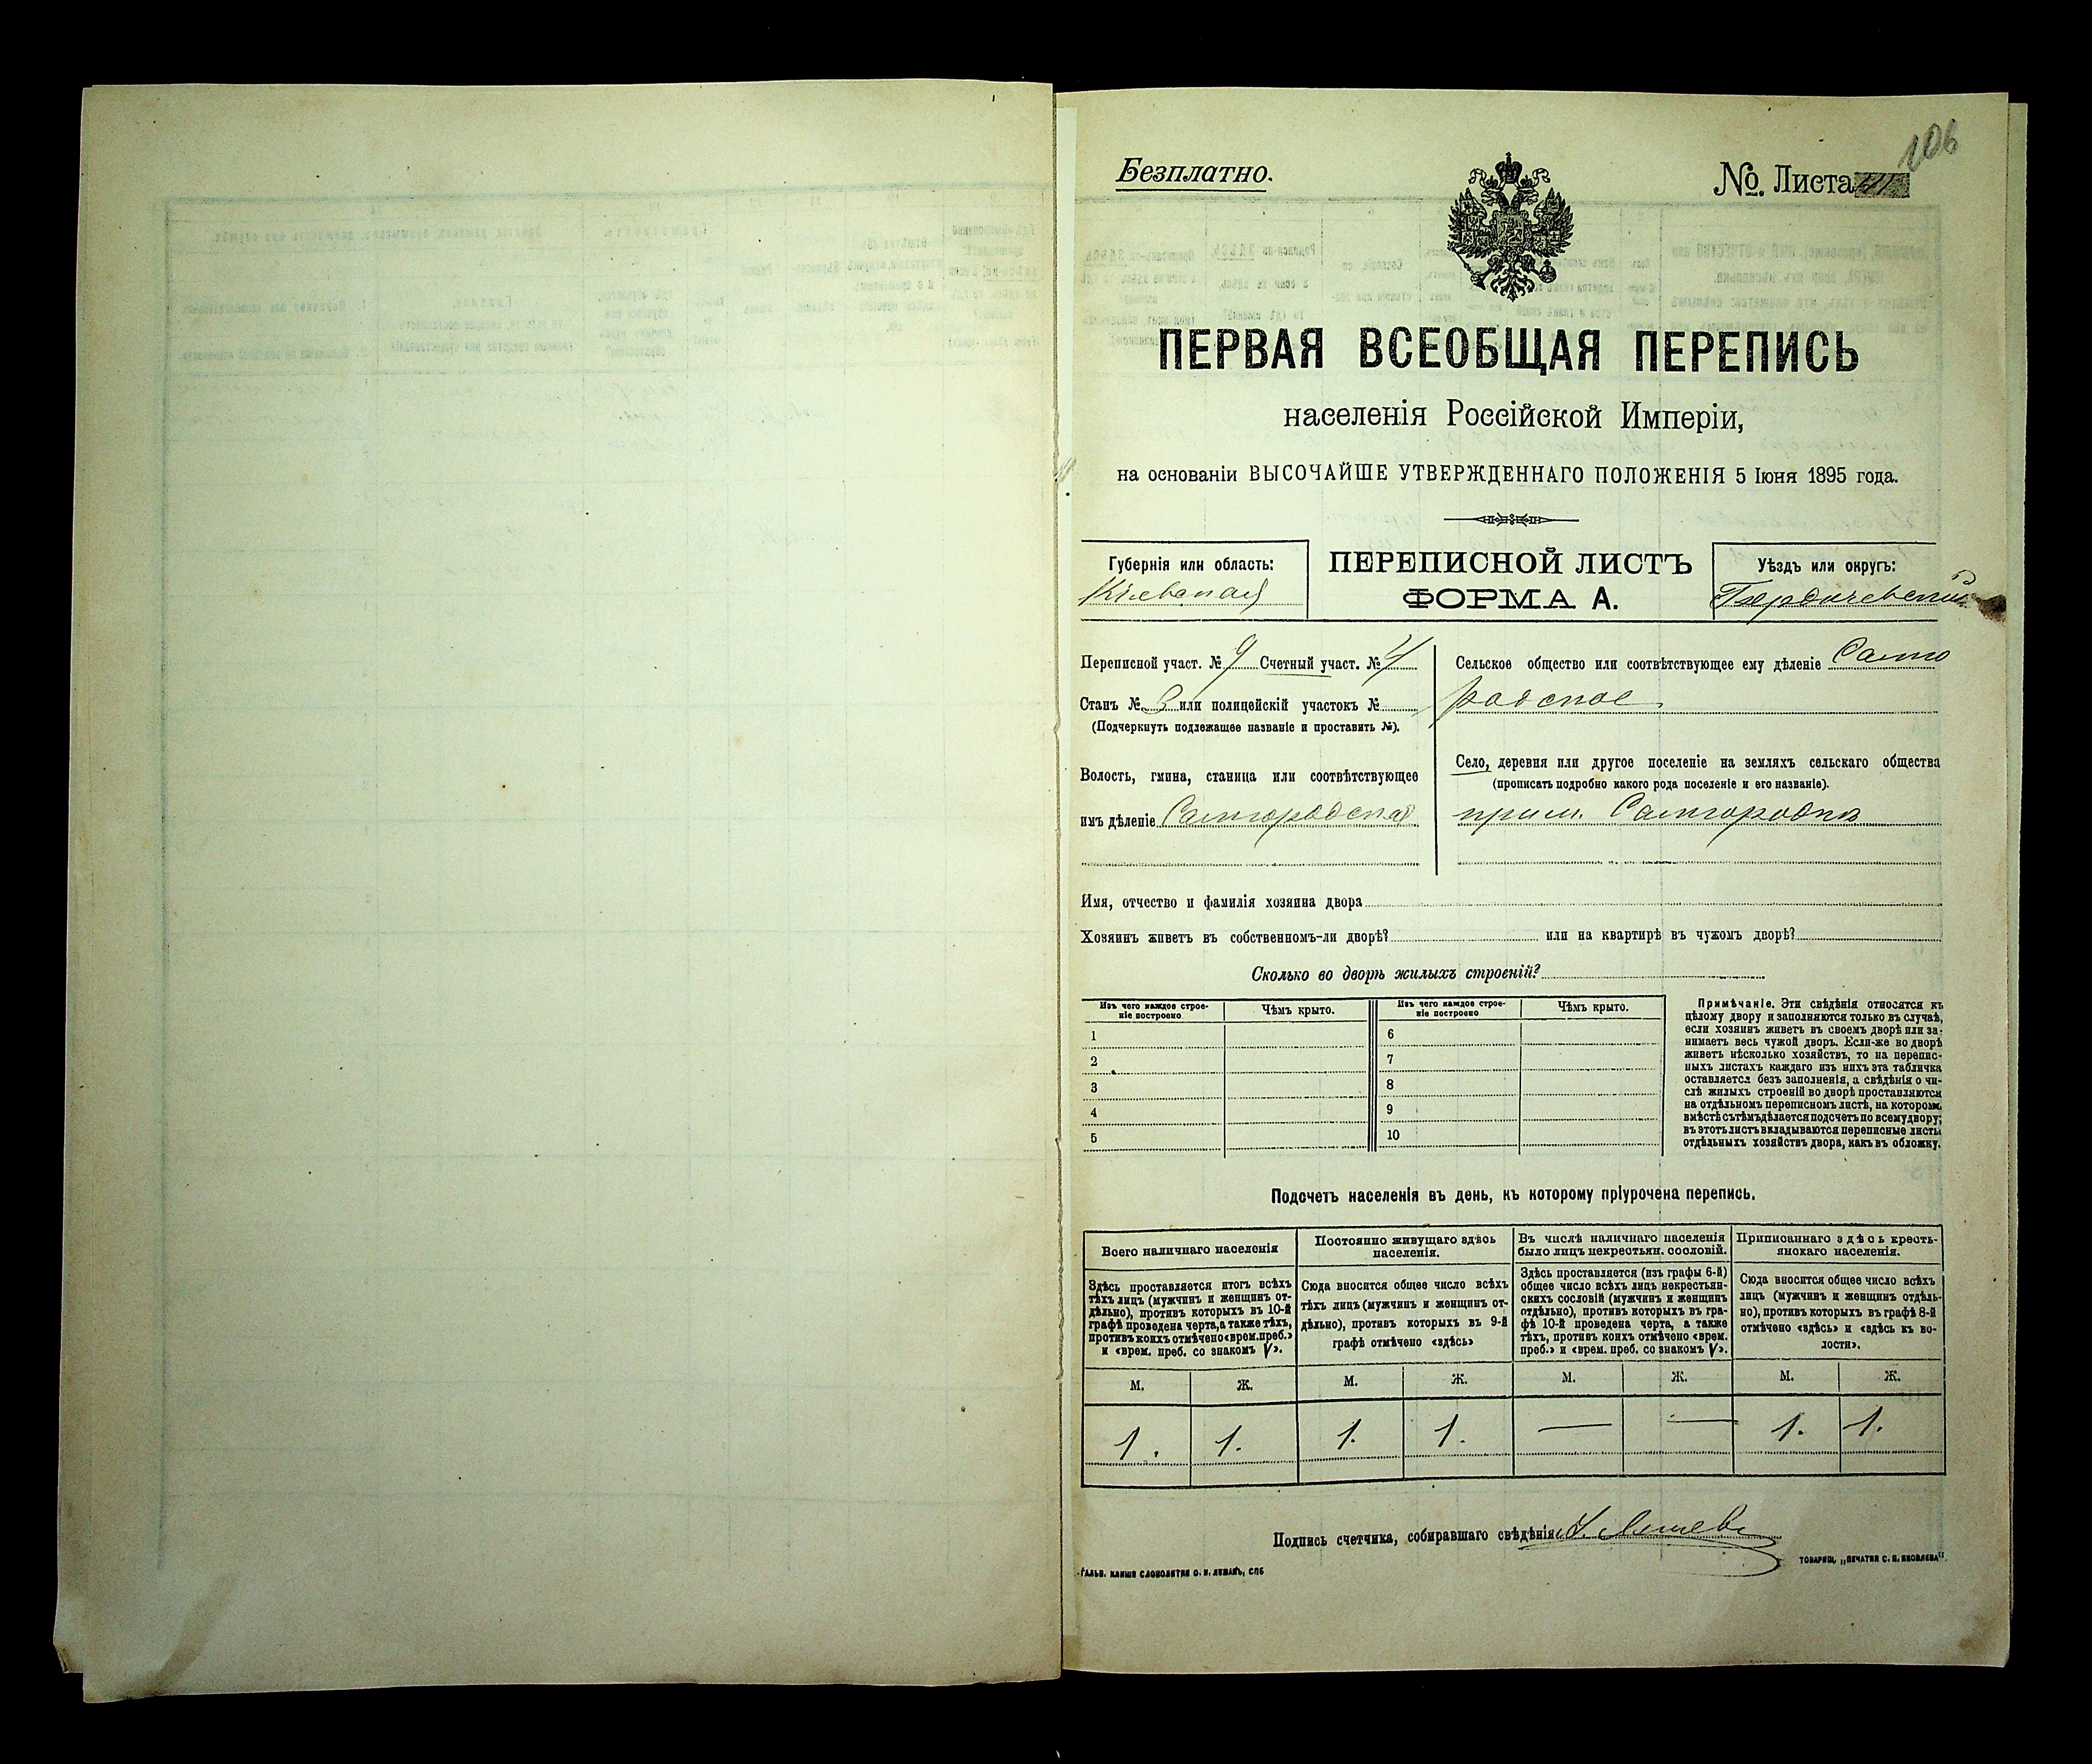 106
Безплатно.
№. Листа 41
ПЕРВАЯ ВСЕОБЩАЯ ПЕРЕПИСЬ
населенія Россійской Имперіи,
на основаніи ВЫСОЧАЙШЕ УТВЕРЖДЕННАГО ПОЛОЖЕНІЯ 5 Іюня 1895 года.
Губернія или область:
Кіевская
ПЕРЕПИСНОЙ ЛИСТЪ
ФОРМА А.
Уѣздъ или округъ:
Бердичевскій
Переписной участ. № 9 Счетный участ. № 4
Станъ № 3 или полицейскій участокъ №
(Подчеркнуть подлежащее названіе и проставить №).
Волость, гмина, станица или соотвѣтствующее
имъ дѣленіе Самгородская
Сельское общество или соотвѣтствующее ему дѣленіе Самго
родское
Село, деревня или другое поселеніе на земляхъ сельскаго общества
(прописать подробно какого рода поселеніе и его названіе).
Самгородка
Имя, отчество и фамилія хозяина двора
Хозяинъ живетъ въ собственномъ-ли дворѣ? или на квартирѣ въ чужомъ дворѣ?
Сколько во дворѣ жилыхъ строеній?
Изъ чего каждое строе-
ніе построено
Чѣмъ крыто.
1
2
3
4
5
Изъ чего каждое строе-
ніе построено
Чѣмъ крыто.
6
7
8
9
10
Примѣчаніе. Эти свѣдѣнія относятся къ
цѣлому двору и заполняются только въ случаѣ,
если хозяинъ живетъ въ своемъ дворѣ или за-
нимаетъ весь чужой дворъ. Если-же во дворѣ
живетъ нѣсколько хозяйствъ, то на перепис-
ныхъ листахъ каждаго изъ нихъ эта табличка
оставляется безъ заполненія, а свѣдѣнія о чи-
слѣ жилыхъ строеній во дворѣ проставляются
на отдѣльномъ переписномъ листѣ, на которомъ
вмѣстѣ съ тѣмъ дѣлается подсчетъ по всему двору;
въ этотъ листъ вкладываются переписные листы
отдѣльныхъ хозяйствъ двора, какъ въ обложку.
Подсчетъ населенія въ день, къ которому пріурочена перепись.
Всего наличнаго населенія
Здѣсь проставляется итогъ всѣхъ
тѣхъ лицъ (мужчинъ и женщинъ от-
дѣльно), противъ которыхъ въ 10-й
графѣ проведена черта, а также тѣхъ,
противъ коихъ отмѣчено «врем. преб.»
и «врем. преб. со знакомъ V».
Постоянно живущаго здѣсь
населенія.
Сюда вносится общее число всѣхъ
тѣхъ лицъ (мужчинъ и женщинъ от-
дѣльно), противъ которыхъ въ 9-й
графѣ отмѣчено «здѣсь»
Въ числѣ наличнаго населенія
было лицъ некрестьян. сословій.
Здѣсь проставляется (изъ графы 6-й)
общее число всѣхъ лицъ некрестьян-
скихъ сословій (мужчинъ и женщинъ
отдѣльно), противъ которыхъ въ гра-
фѣ 10-й проведена черта, а также
тѣхъ, противъ коихъ отмѣчено «врем.
преб.» и «врем. преб. со знакомъ V».
Приписаннаго здѣсь кресть-
янскаго населенія.
Сюда вносится общее число всѣхъ
лицъ (мужчинъ и женщинъ отдѣль-
но), противъ которыхъ въ графѣ 8-й
отмѣчено «здѣсь» и «здѣсь къ во-
лости».
М. Ж. М. Ж. М. Ж. М. Ж.
1. 1. 1. 1. — — 1. 1.
Подпись счетчика, собиравшаго свѣдѣнія
ГАЛЬВ. КЛИШЕ СЛОВОЛИТНИ О. И. ЛЕМАНЪ, СПБ
ТОВАРИЩ. „ПЕЧАТНЯ С. П. ЯКОВЛЕВА".